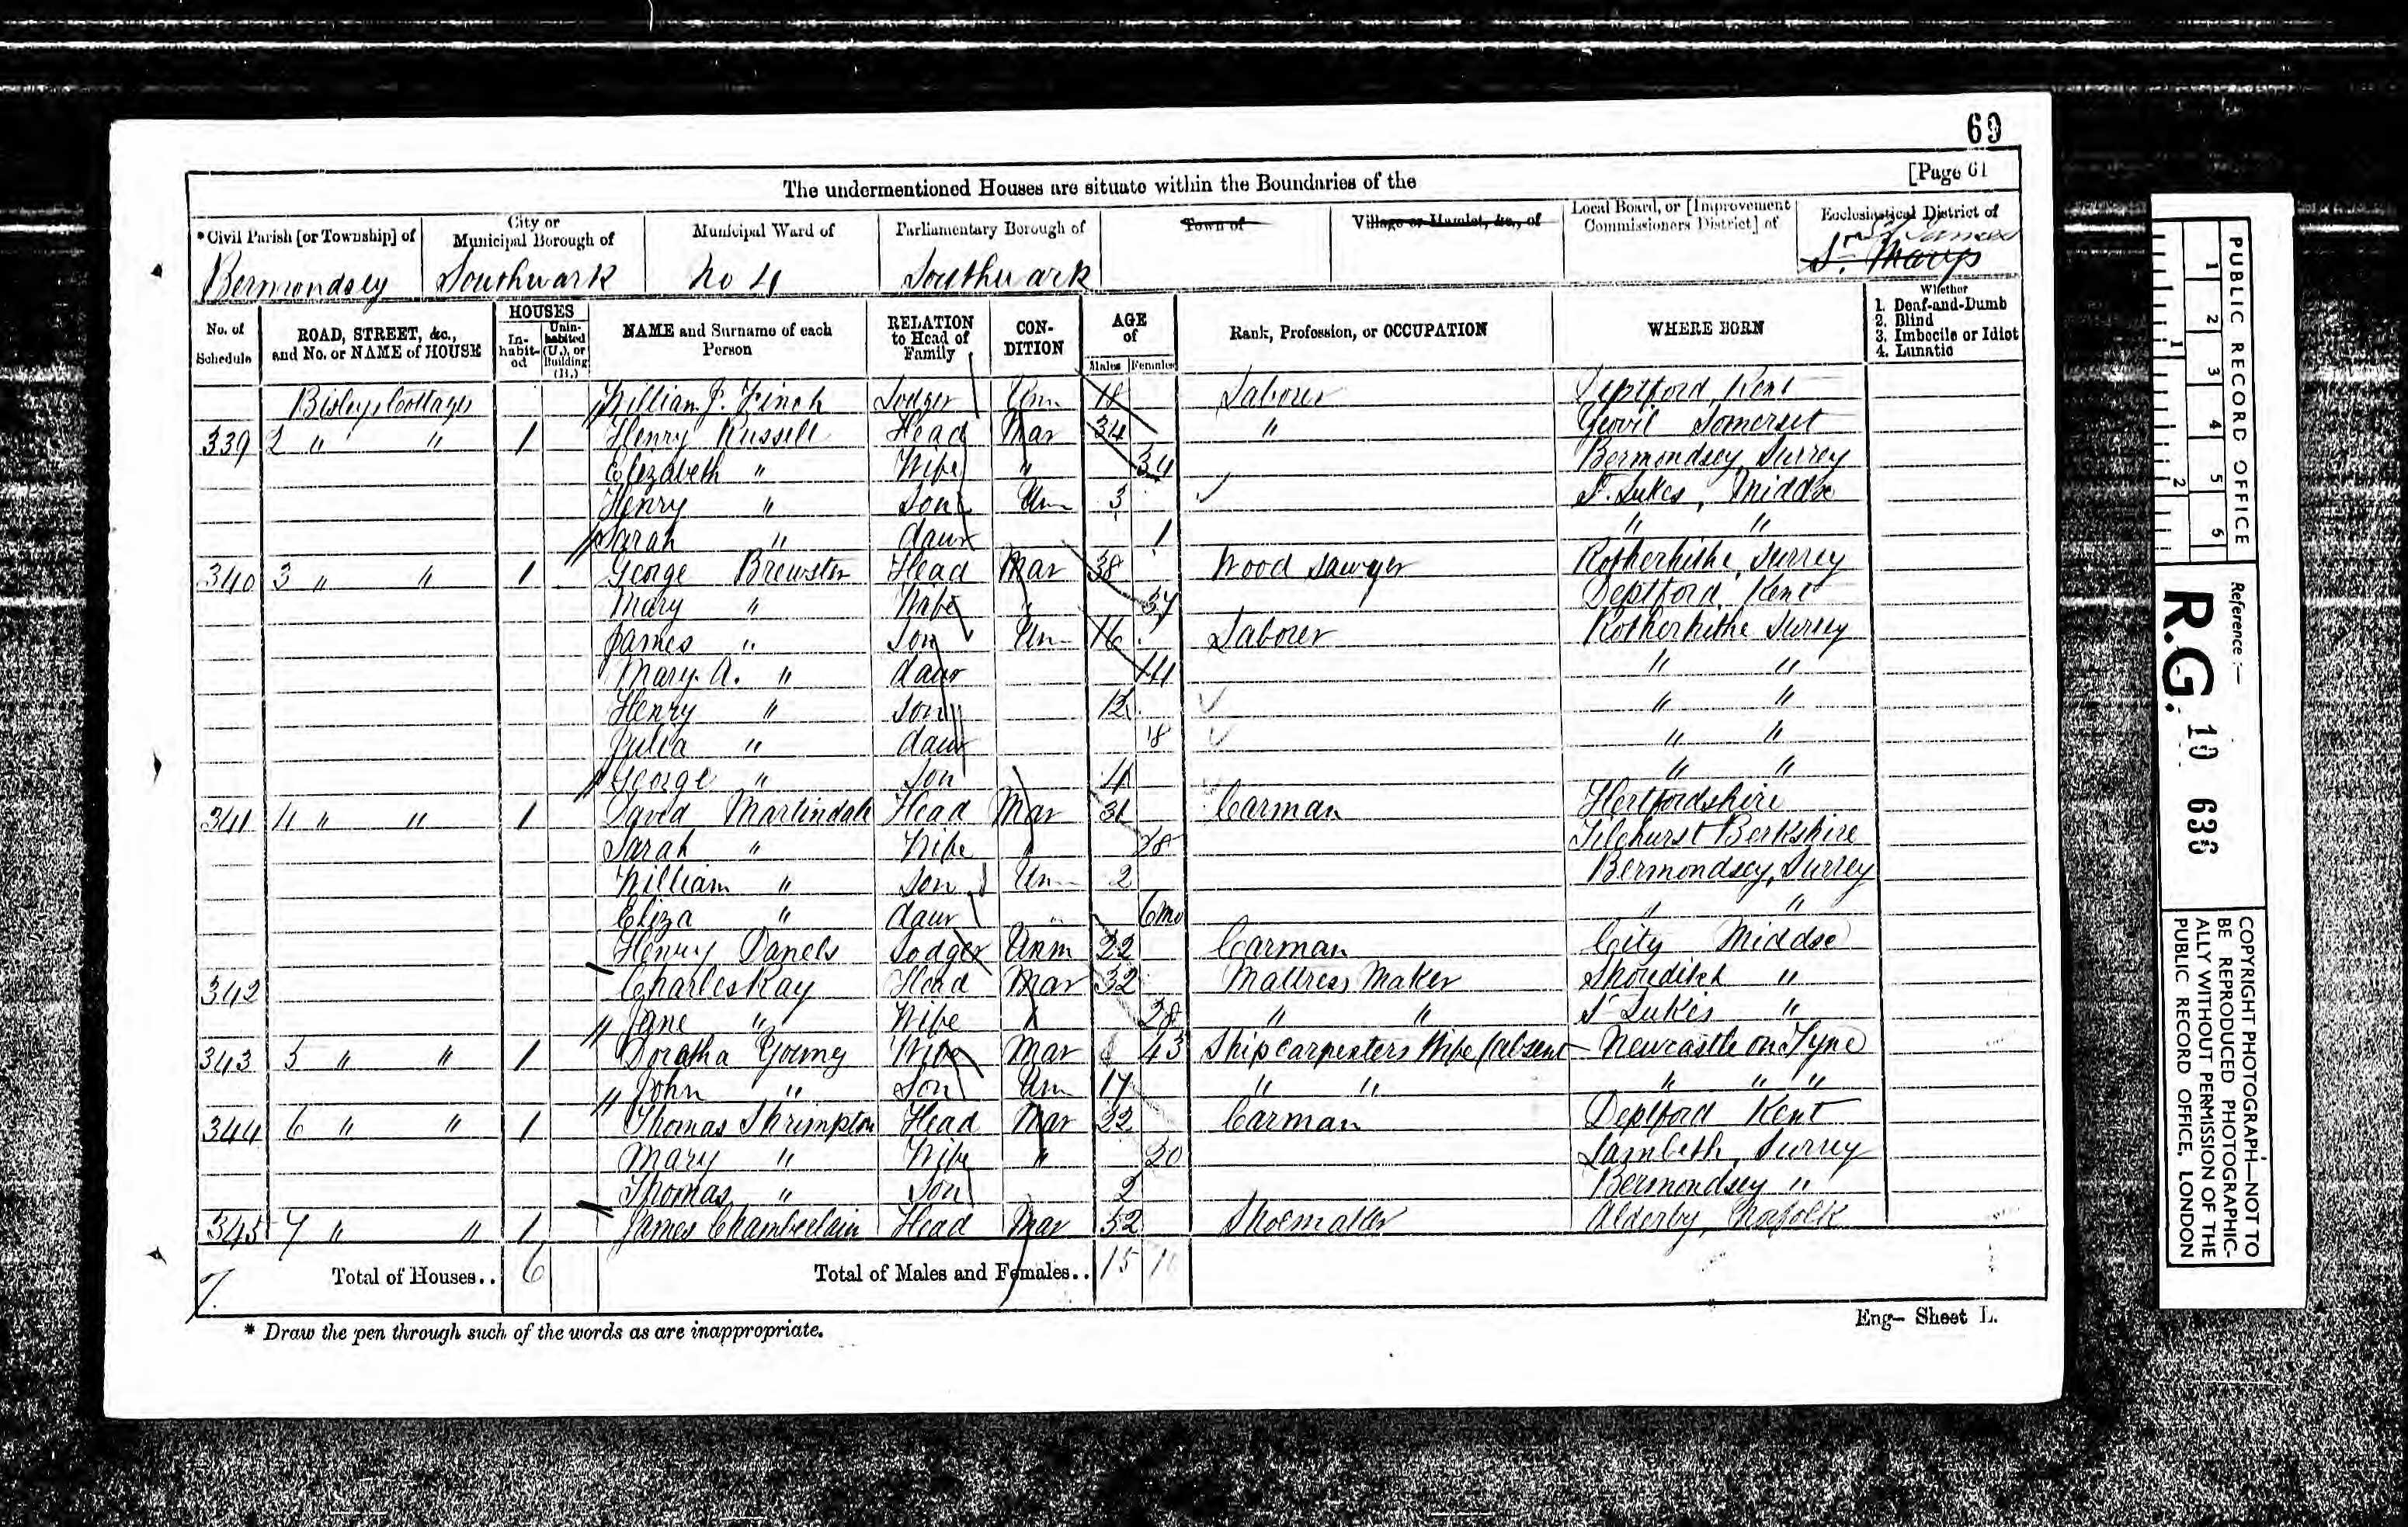 69
[Page 61
The undermentioned Houses are situate within the Boundaries of the
*Civil Parish [or Township] of
City or Municipal Borough of
Municipal Ward of
Parliamentary Borough of
Town of
Village or Hamlet, &c., of
Local Board, or [Improvement Commissioners District] of
Ecclesiastical District of
Bermondsey Southwark No 4 Southwark St James
St. Marys
No. of Schedule
ROAD, STREET, &c., and No. or NAME of HOUSE
HOUSES
In-habit-ed
Unin-habited (U.), or Building (B.)
NAME and Surname of each Person
RELATION to Head of Family
CON-DITION
AGE of
Males Females
Rank, Profession, or OCCUPATION
WHERE BORN
Whether
1. Deaf-and-Dumb
2. Blind
3. Imbecile or Idiot
4. Lunatic
Bisleys Cottages William J. Finch Lodger Unm 18 Laborer Deptford, Kent
339 2 " " 1 Henry Russell Head Mar 34 " Yeovil Somerset
Elizabeth " Wife " 34 Bermondsey Surrey
Henry " Son Unm 3 St. Lukes, Middx
Sarah " daur 1 " "
340 3 " " 1 George Brewster Head Mar 38 Wood Sawyer Rotherhithe, Surrey
Mary " Wife " 37 Deptford, Kent
James " Son Un 16 Laborer Rotherhithe Surrey
Mary. A. " daur 14 " "
Henry " Son 12 " "
Julia " daur 8 " "
George " Son 4 " "
341 4 " " 1 David Martindale Head Mar 31 Carman Hertfordshire
Sarah " Wife " 28 Tilehurst Berkshire
William " Son Un 2 Bermondsey, Surrey
Eliza " daur " 6mo " "
Henry Danels Lodger Unm 22 Carman City Middse
342 Charles Ray Head Mar 32 Mattress Maker Shoreditch "
Jane " Wife " 28 " " St Lukes "
343 5 " " 1 Doratha Young Wife Mar 43 Ship carpenters Wife (absent Newcastle on Tyne
John " Son Un 17 " " " " "
344 6 " " 1 Thomas Shrimpton Head Mar 22 Carman Deptford Kent
Mary " Wife " 20 Lambeth, Surrey
Thomas " Son 2 Bermondsey "
345 7 " " 1 James Chamberlain Head Mar 52 Alderby, Norfolk
7 Total of Houses.. 6 Total of Males and Females.. 15 10
* Draw the pen through such of the words as are inappropriate.
Eng- Sheet L.
PUBLIC RECORD OFFICE
1 2 3 4 5 6
1 2
Reference :-
R.G. 10 636
COPYRIGHT PHOTOGRAPH—NOT TO
BE REPRODUCED PHOTOGRAPHIC-
ALLY WITHOUT PERMISSION OF THE
PUBLIC RECORD OFFICE, LONDON